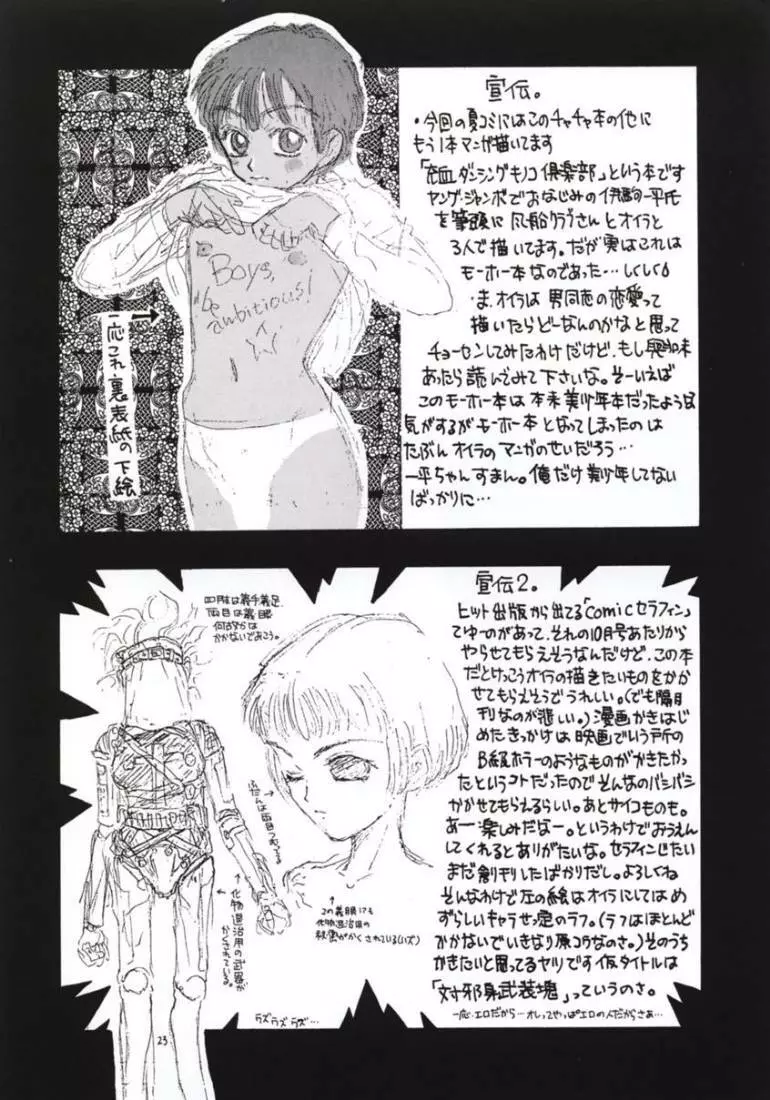 宣伝。
・今回の夏コミにはこのチャチャ本の他に
もう1本マンガ描いてます
という本です
ヤング・ジャンボでおなじみの伊駒一平氏
を筆頭に風船クラブさんとオイラと
3人で描いてます。だが実はこれは
モーホー本なのであった…しくしく
ま、オイラは男同志の恋愛って
描いたらどーなんのかなと思って
チョーセンしてみたわけだけど、もし興味
あったら読んでみて下さいな。そーいえば
このモーホー本は本来美少年本だったような
気がするがモーホー本となってしまったのは
たぶんオイラのマンガのせいだろう…
一平ちゃんすまん。俺だけ美少年してない
ばっかりに…
Boys,
be
ambitious!
→
一応これ裏表紙の下絵
宣伝2。
ヒット出版から出てる「comicセラフィン」
てゆーのがあって、それの10月号あたりから
やらせてもらえそうなんだけど、この本
だとけっこうオイラの描きたいものをかか
せてもらえそうでうれしい。(でも隔月
刊なのが悲しい。)漫画かきはじ
めたきっかけは映画でいう所の
B級ホラーのようなものがかきたかっ
たというコトだったのでそんなのバシバシ
かかせてもらえるらしい。あとサイコものも。
あー楽しみだなー。というわけでおうえん
してくれるとありがたいな。セラフィンじたい
まだ創刊したばかりだし。よろしくね
そんなわけで左の絵はオイラにしてはめ
ずらしいキャラせっ定のラフ。(ラフはほとんど
かかないでいきなり原コウなのさ。)そのうち
かきたいと思ってるヤツです仮タイトルは
「対邪身武装塊」っていうのさ。
一応、エロだから…オレってやっぱエロの人だからさぁ…
四肢は義手義足、
両目は義眼
何故かは
かかないでおこう。
ふだんは両目つむってる
↑
この義眼にも
化物退治用の
秘密がかくされている(ハズ)
↑
化物退治用の武器が
かくされている。
ラズラズラズ…
23